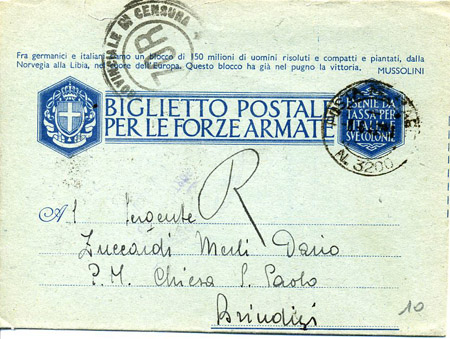 PROVINCIALE DI CENSURA
73R
Fra germanici e italiani siamo un blocco di 150 milioni di uomini risoluti e compatti e piantati, dalla
Norvegia alla Libia, nel cuore dell'Europa. Questo blocco ha già nel pugno la vittoria. MUSSOLINI
BIGLIETTO POSTALE
PER LE FORZE ARMATE
POSTA
N. 3200
ESENTE DA
TASSA PER
ITALIA
SUE COLONIE
R
Al Sergente
Zuccardi Merli Dario
P. M. Chiesa S. Paolo
Brindizi
10